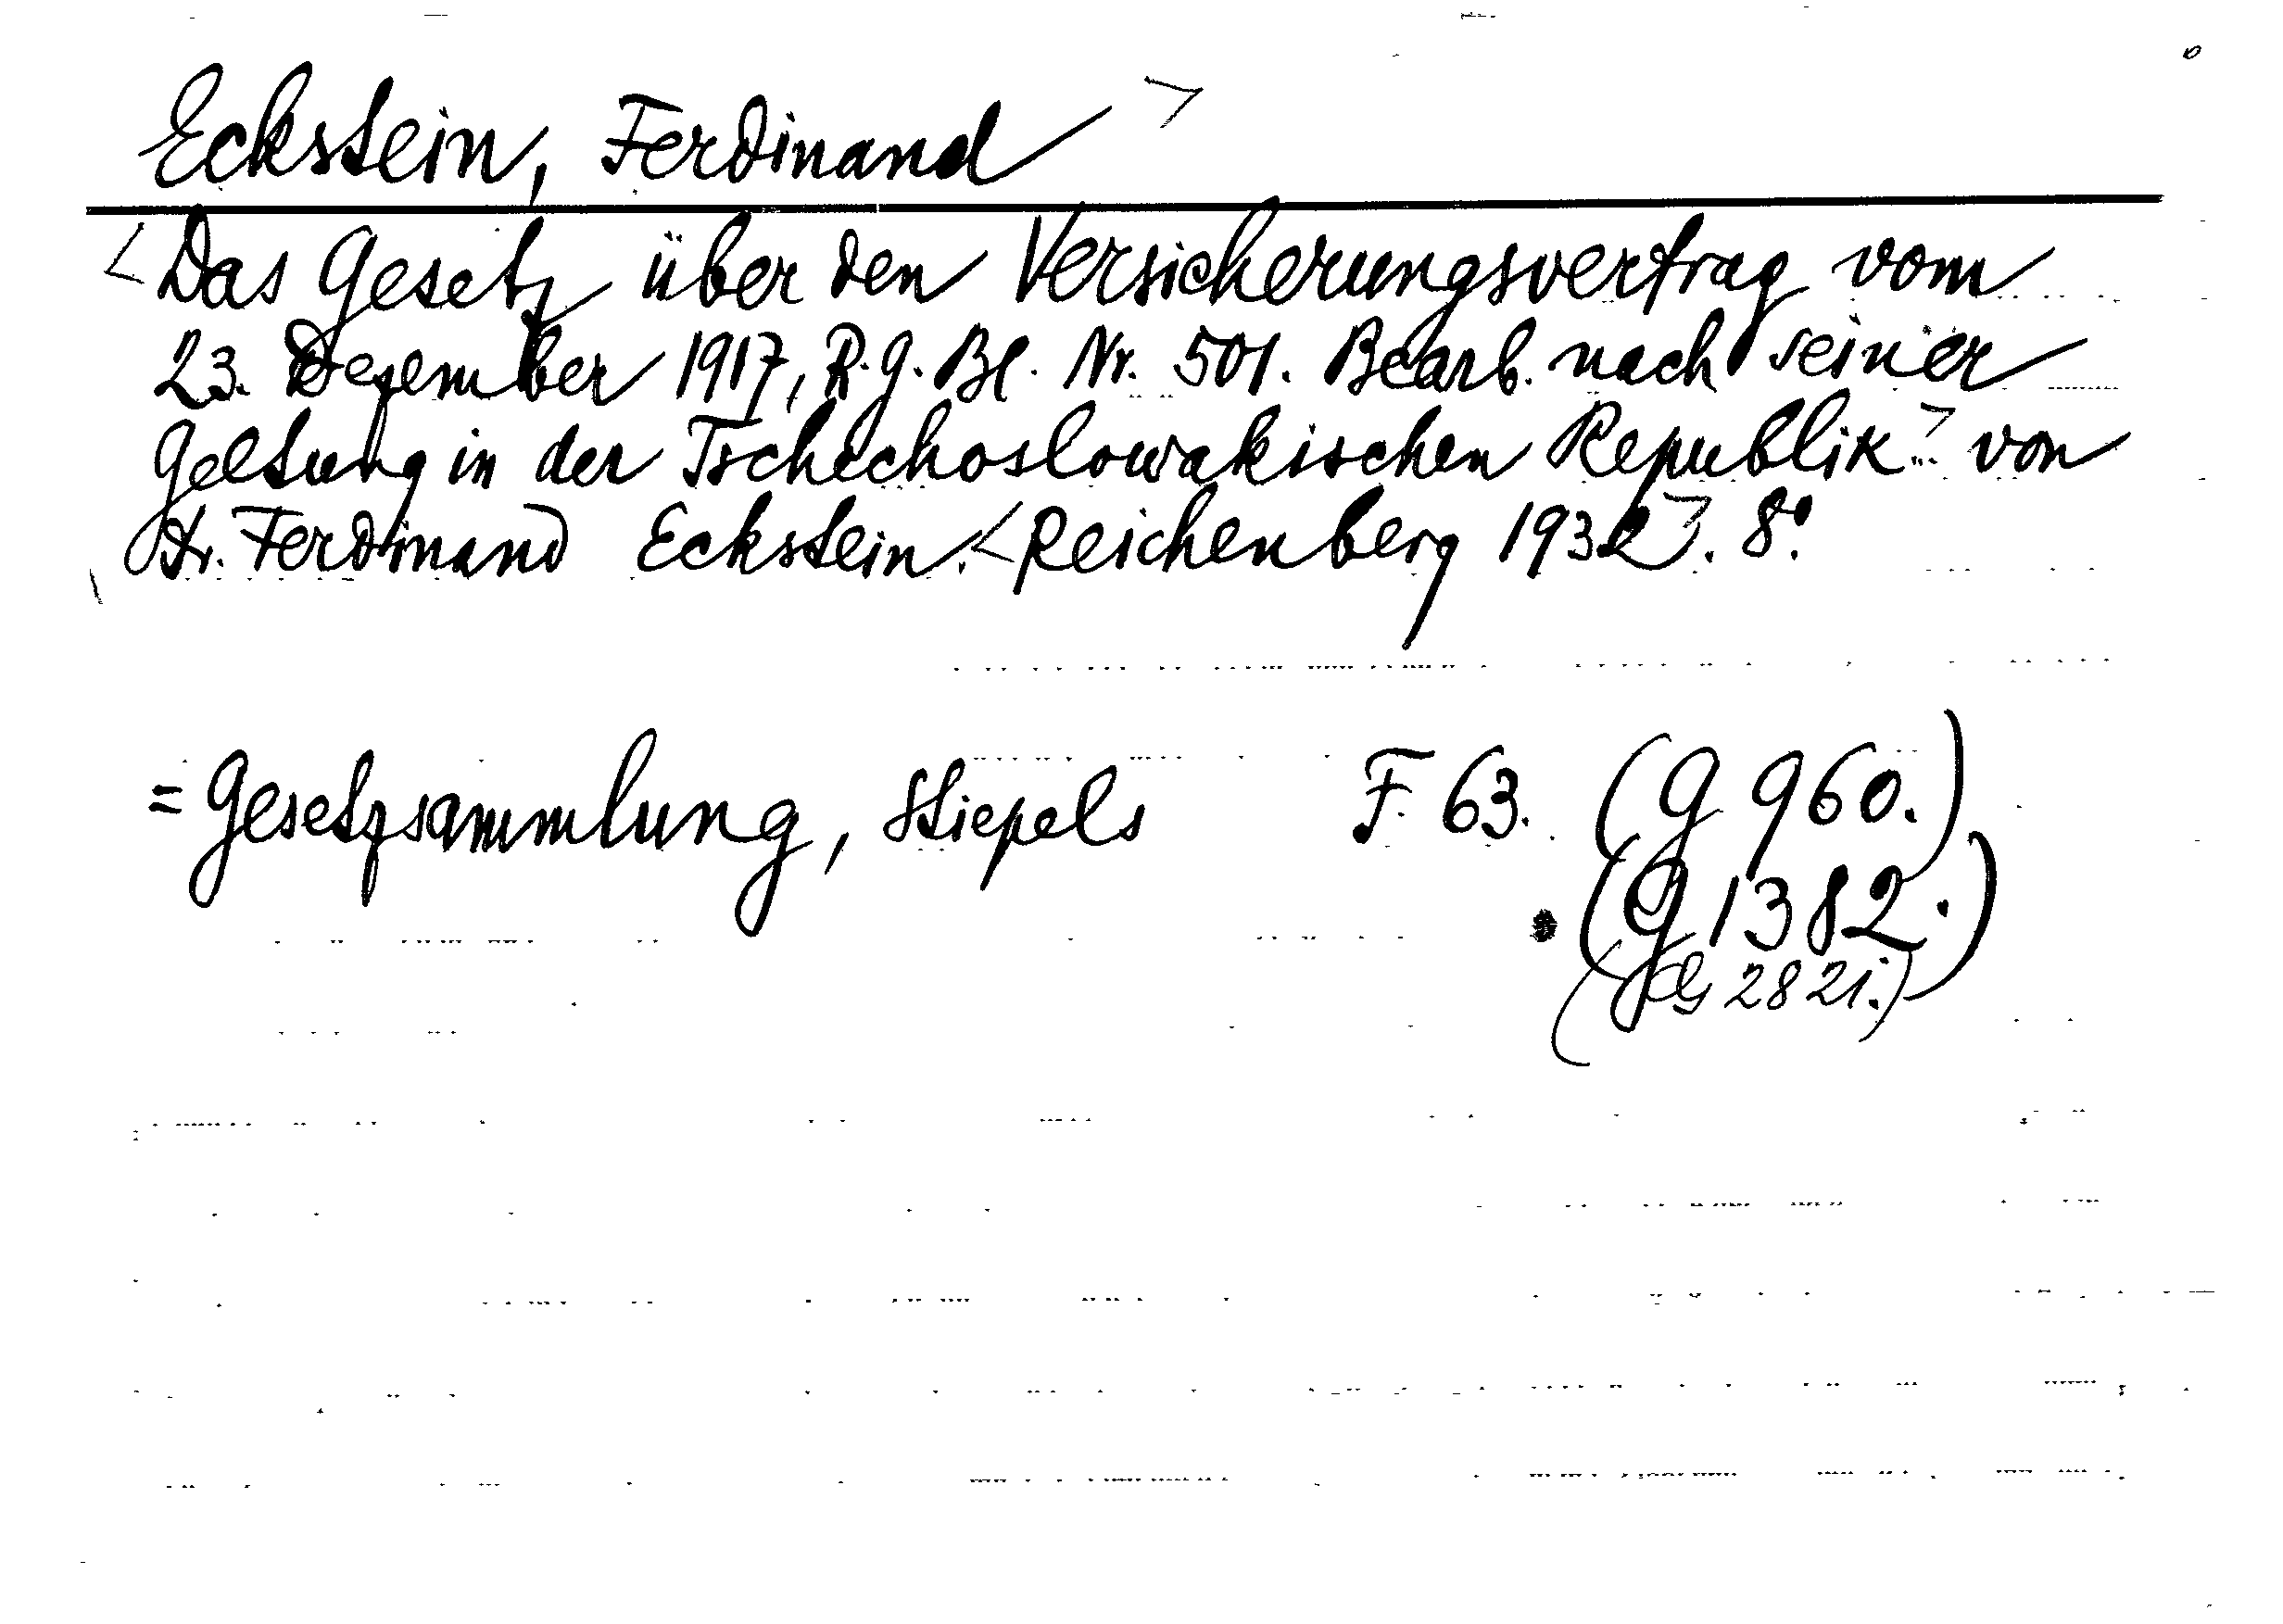 Eckstein, Ferdinand >
<Das Gesetz über den Versicherungsvertrag vom
23. Dezember 1917, R.G.Bl. Nr. 501. Bearb. nach seiner
Geltung in der Tschechoslowakischen Republik> von
Dr. Ferdinand Eckstein. <Reichenberg 1932>. 8°.
= Gesetzsammlung, Stiepels F 63. (G 960.)
(G 1382.)
(G 2821.)